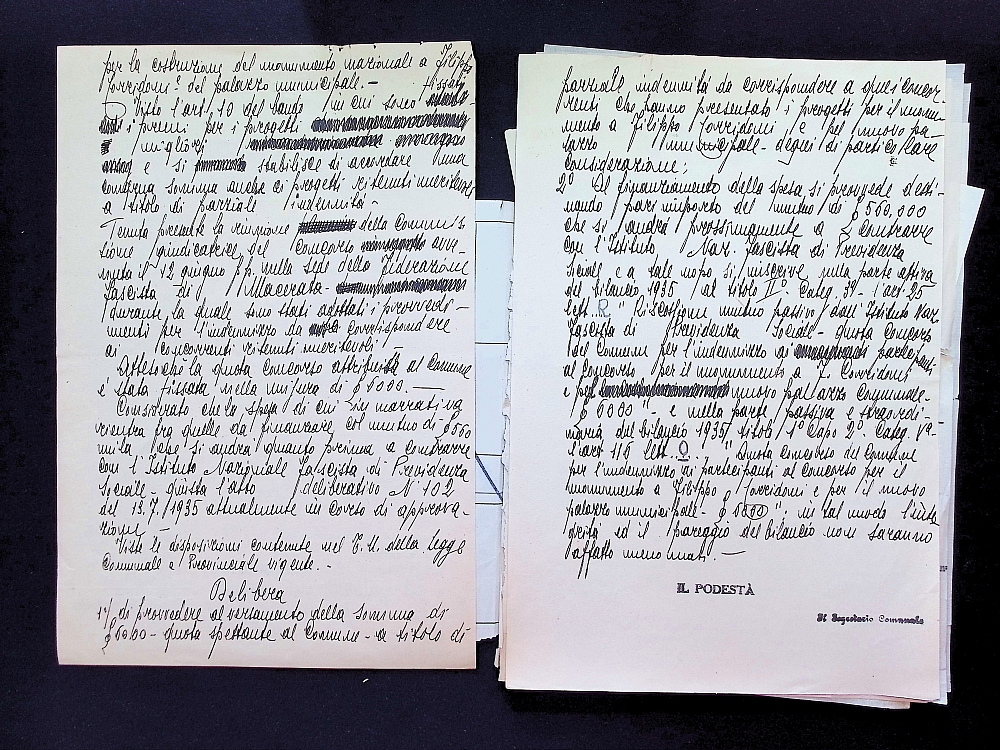 per la costruzione del monumento nazionale a Filippo
Corridoni e del palazzo municipale. -
fissati
Visto l'art. 10 del bando in cui sono
i premi per i progetti
migliori
e si stabilisce di accordare una
congrua somma anche ai progetti ritenuti meritevoli
a titolo di parziale indennità. -
Tenuta presente la riunione della Commis
sione giudicatrice del Concorso avve
nuta il 12 giugno pp. nella sede della Federazione
Fascista di Macerata -
durante la quale sono stati adottati i provvedi-
menti per l'indennizzo da corrispondere
ai concorrenti ritenuti meritevoli. -
Atteso che la quota concorso attribuita al Comune
è stata fissata nella misura di £ 6000. -
Considerato che la spesa di cui in narrativa
rientra fra quelle da finanziare col mutuo di £ 560
mila, che si andrà quanto prima a contrarre
con l'Istituto Nazionale Fascista di Previdenza
Sociale - giusta l'atto deliberativo N° 102
del 13.7.1935 attualmente in corso di approva-
zione. -
Viste le disposizioni contenute nel T.U. della legge
Comunale e Provinciale vigente. -
Delibera
1°) di provvedere al versamento della somma di
£ 6000 - quota spettante al Comune - a titolo di
parziale indennità da corrispondere a quei concor-
renti che hanno presentato i progetti per il monu-
mento a Filippo Corridoni e pel nuovo pa-
lazzo municipale - degni di particolare
considerazione;
2° Al finanziamento della spesa si provvede desti-
nando pari importo del mutuo di £ 560,000
che si andrà prossimamente a contrarre
con l'Istituto Naz. Fascista di Previdenza
Sociale e a tale uopo si inscrive nella parte attiva
del bilancio 1935 al titolo II° Categ. 3ª - l'art. 25
lett. R " Riscossione mutuo passivo dall'Istituto Naz.
Fascista di Previdenza Sociale - quota concorso
del Comune per l'indennizzo ai partecipanti
al Concorso per il monumento a F. Corridoni
e pel nuovo palazzo Comunale -
£ 6000 " - e nella parte passiva e straordi-
naria del bilancio 1935 titolo 1° Capo 2° Categ. Vª -
l'art 118 lett. Q. - " Quota concorso del Comune
per l'indennizzo ai partecipanti al Concorso per il
monumento a Filippo Corridoni e per il nuovo
palazzo municipale - £ 6000 "; in tal modo l'inte
grità ed il pareggio del bilancio non saranno
affatto menomati. -
IL PODESTÀ
Il Segretario Comunale